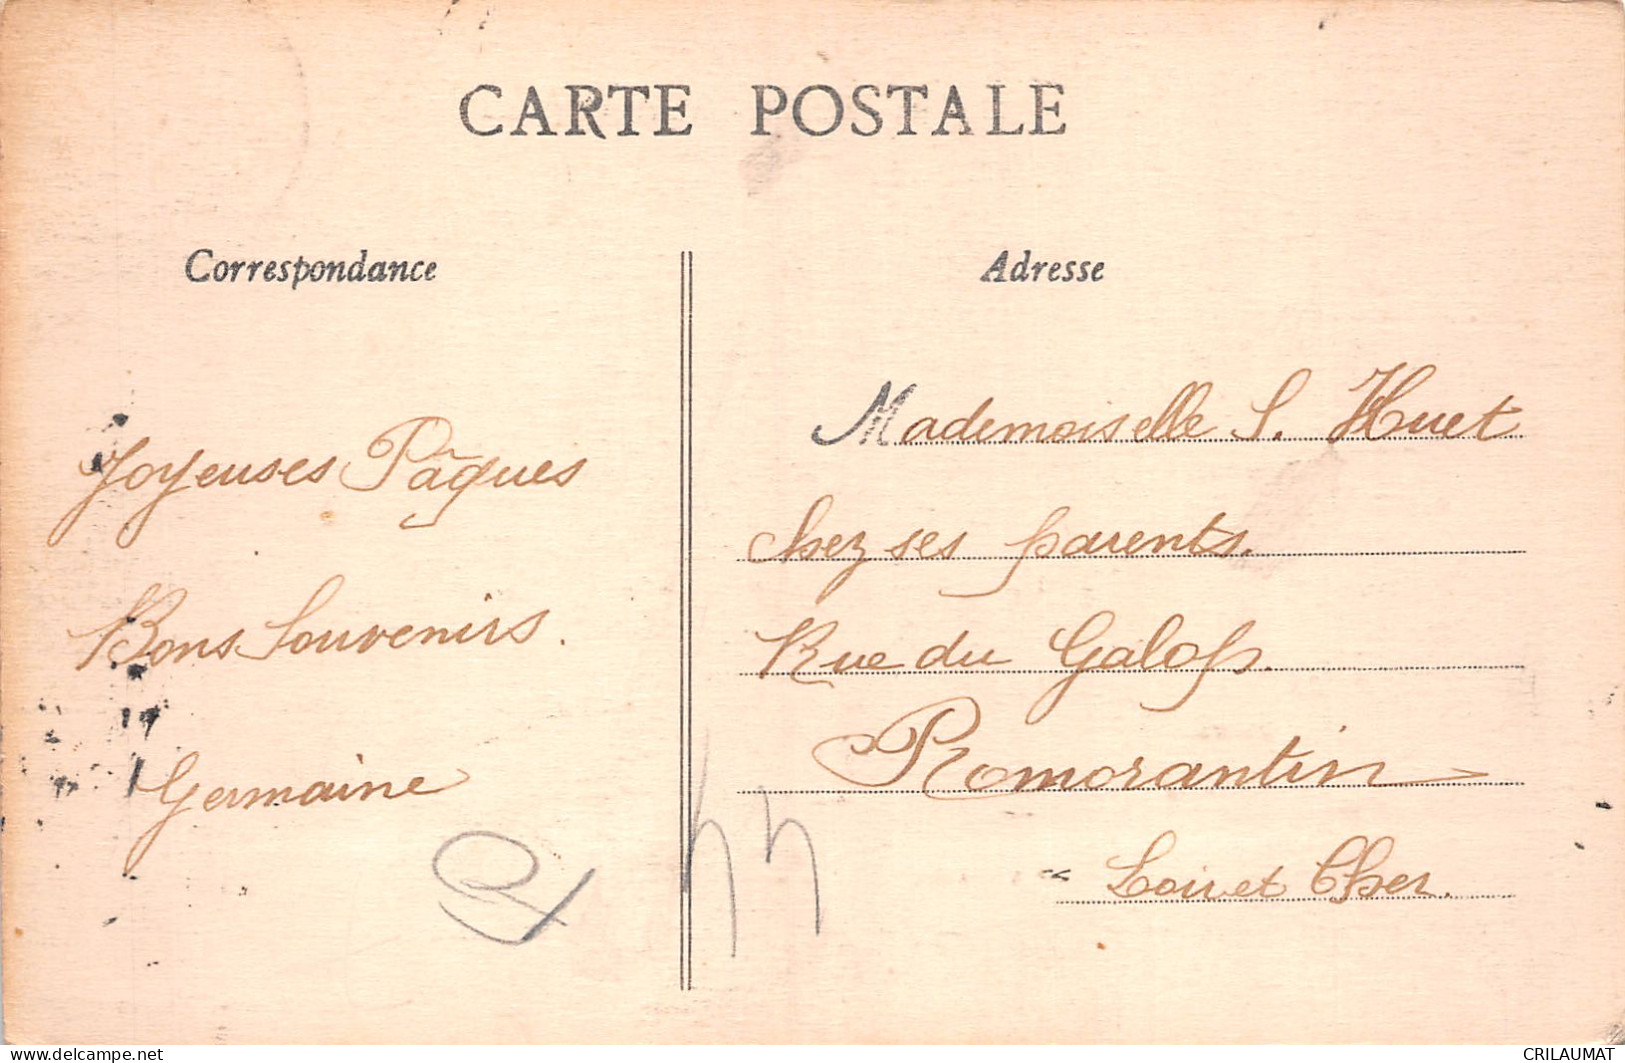 CARTE POSTALE
Correspondance
Joyeuses Pâques
Bons Souvenirs.
Germaine
Adresse
Mademoiselle S. Huet
Chez ses parents.
Rue du Galop.
Romorantin
Loir et Cher.
44
delcampe.net
CRILAUMAT